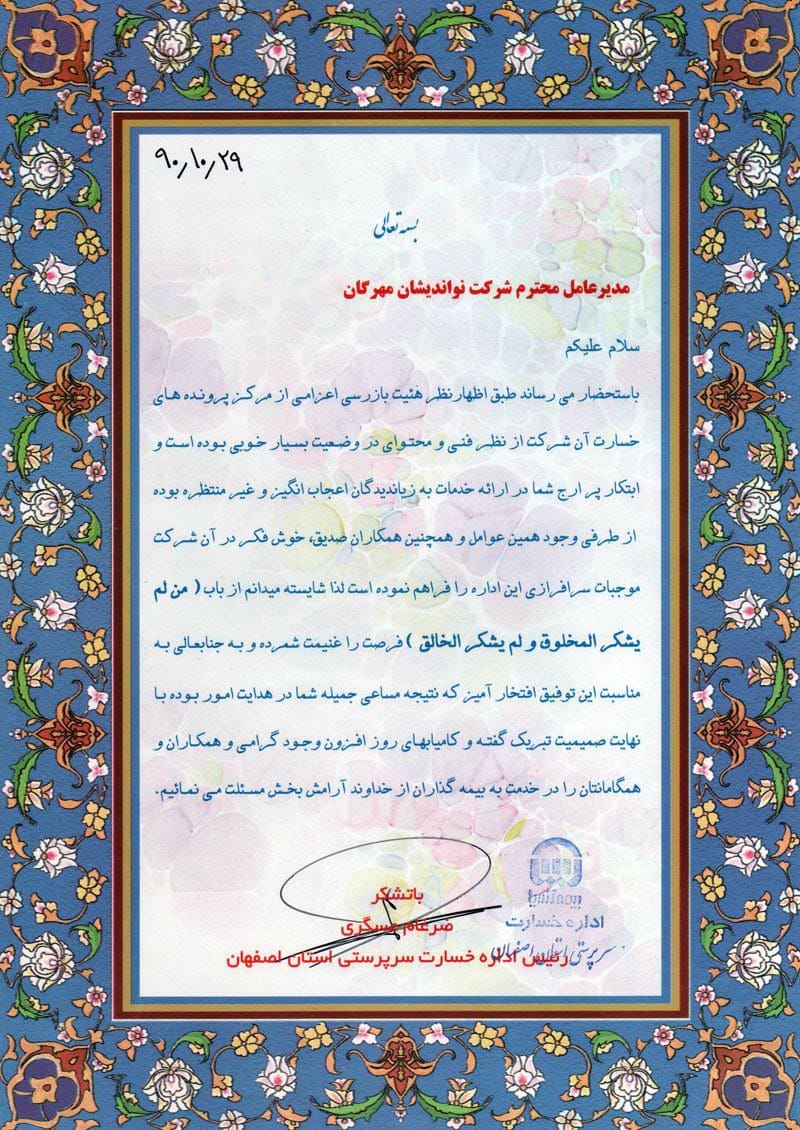 ۹۰/۱۰/۲۹
بسمه تعالی
مدیرعامل محترم شرکت نواندیشان مهرگان
سلام علیکم
باستحضار می رساند طبق اظهارنظر هئیت بازرسی اعزامی از مرکز پرونده های
خسارت آن شرکت از نظر فنی و محتوای در وضعیت بسیار خوبی بوده است و
ابتکار پر ارج شما در ارائه خدمات به زیاندیدگان اعجاب انگیز و غیر منتظره بوده
از طرفی وجود همین عوامل و همچنین همکاران صدیق، خوش فکر در آن شرکت
موجبات سرافرازی این اداره را فراهم نموده است لذا شایسته میدانم از باب ( من لم
یشکر المخلوق و لم یشکر الخالق ) فرصت را غنیمت شمرده و به جنابعالی به
مناسبت این توفیق افتخار آمیز که نتیجه مساعی جمیله شما در هدایت امور بوده با
نهایت صمیمیت تبریک گفته و کامیابهای روز افزون وجود گرامی و همکاران و
همگامانتان را در خدمت به بیمه گذاران از خداوند آرامش بخش مسئلت می نمائیم.
باتشکر
ضرغام عسگری
رئیس اداره خسارت سرپرستی استان اصفهان
بیمه آسیا
اداره خسارت
سرپرستی استان اصفهان